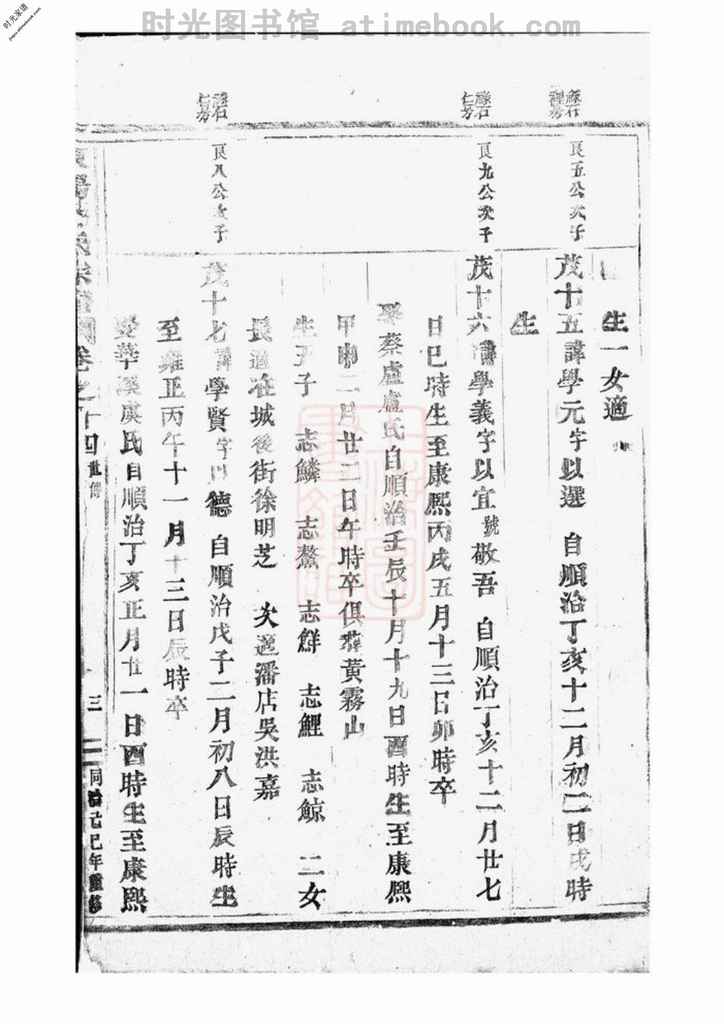 时光图书馆 atimebook.com
时光家谱
生一女適
良五公次子
茂十五諱學元字以選 自順治丁亥十二月初二日戌時
生
良九公次子
茂十六諱學義字以宜號敬吾 自順治丁亥十二月廿七
日巳時生至康熙丙戌五月十三日卯時卒
娶蔡盧盧氏自順治壬辰十月十九日酉時生至康熙
甲申二月廿二日午時卒俱葬黃霧山
生五子 志鱗 志鰲 志鮮 志鯉 志鯨 二女
長適在城後街徐明芝 次適潘店吳洪嘉
良八公次子
茂十七諱學賢字以德 自順治戊子二月初八日辰時生
至雍正丙午十一月十三日辰時卒
娶華溪虞氏自順治丁亥正月廿一日酉時生至康熙
卷之十四 世傳 三 同治己巳年重修